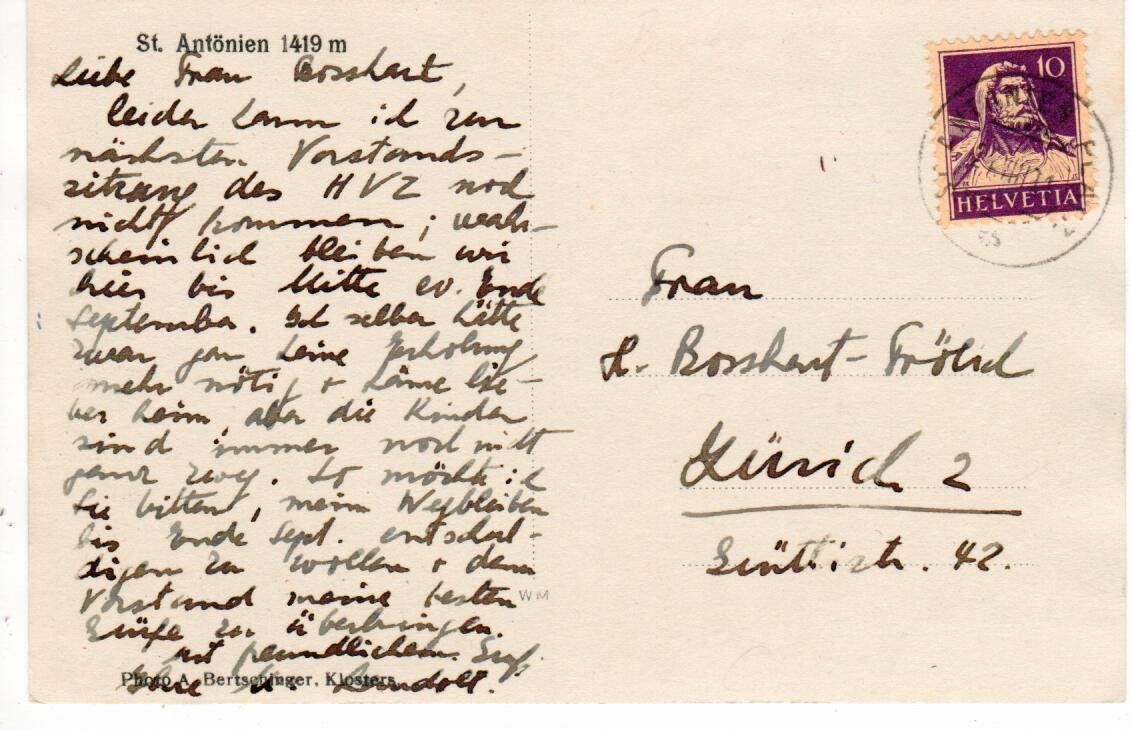 St. Antönien 1419 m
Liebe Frau Bosshart,
leider kann ich zur
nächsten Vorstands-
sitzung des HVZ noch
nicht kommen; wahr-
scheinlich bleiben wir
hier bis Mitte ev. Ende
September. Ich selber hätte
zwar gar keine Erholung
mehr nötig + käme lie-
ber heim, aber die Kinder
sind immer noch nicht
ganz zweg. So möchte ich
Sie bitten, mein Wegbleiben
bis Ende Sept. entschul-
digen zu wollen + dem
Vorstand meine besten
Grüße zu überbringen.
Mit freundlichem Gruß
Ihre M.
Photo A. Bertschinger, Klosters
WM
10
HELVETIA
Frau
H. Bosshart-Frölich
Zürich 2
str. 42.